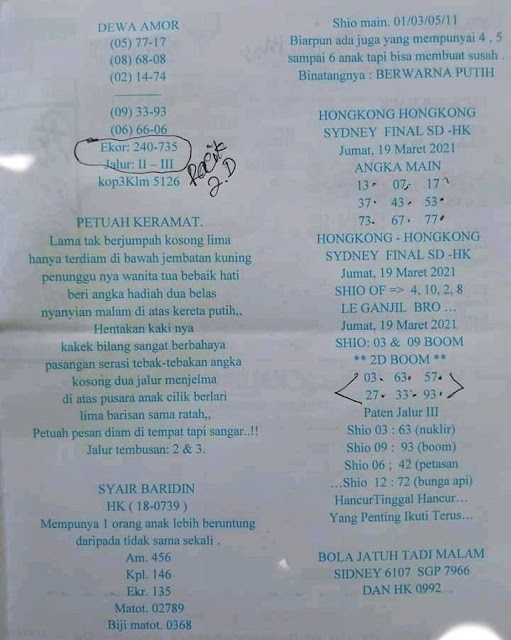 DEWA AMOR
(05) 77-17
(08) 68-08
(02) 14-74
(09) 33-93
(06) 66-06
Ekor: 240-735
Jalur: II – III
kop3Klm 5126
2.D
PETUAH KERAMAT.
Lama tak berjumpah kosong lima
hanya terdiam di bawah jembatan kuning
penunggu nya wanita tua bebaik hati
beri angka hadiah dua belas
nyanyian malam di atas kereta putih,,
Hentakan kaki nya
kakek bilang sangat berbahaya
pasangan serasi tebak-tebakan angka
kosong dua jalur menjelma
di atas pusara anak cilik berlari
lima barisan sama ratah,,
Petuah pesan diam di tempat tapi sangar..!!
Jalur tembusan: 2 & 3.
SYAIR BARIDIN
HK ( 18-0739 )
Mempunya 1 orang anak lebih beruntung
daripada tidak sama sekali .
Am. 456
Kpl. 146
Ekr. 135
Matot. 02789
Biji matot. 0368
Shio main. 01/03/05/11
Biarpun ada juga yang mempunyai 4 , 5
sampai 6 anak tapi bisa membuat susah .
Binatangnya : BERWARNA PUTIH
HONGKONG HONGKONG
SYDNEY FINAL SD -HK
Jumat, 19 Maret 2021
ANGKA MAIN
13 07 17
37 43 53
73 67 77
HONGKONG - HONGKONG
SYDNEY FINAL SD -HK
Jumat, 19 Maret 2021
SHIO OF => 4, 10, 2, 8
LE GANJIL BRO …
Jumat, 19 Maret 2021
SHIO: 03 & 09 BOOM
** 2D BOOM **
03 63 57
27 33 93
Paten Jalur III
Shio 03 : 63 (nuklir)
Shio 09 : 93 (boom)
Shio 06 ; 42 (petasan
…Shio 12 : 72 (bunga api)
HancurTinggal Hancur…
Yang Penting Ikuti Terus…
BOLA JATUH TADI MALAM
SIDNEY 6107 SGP 7966
DAN HK 0992